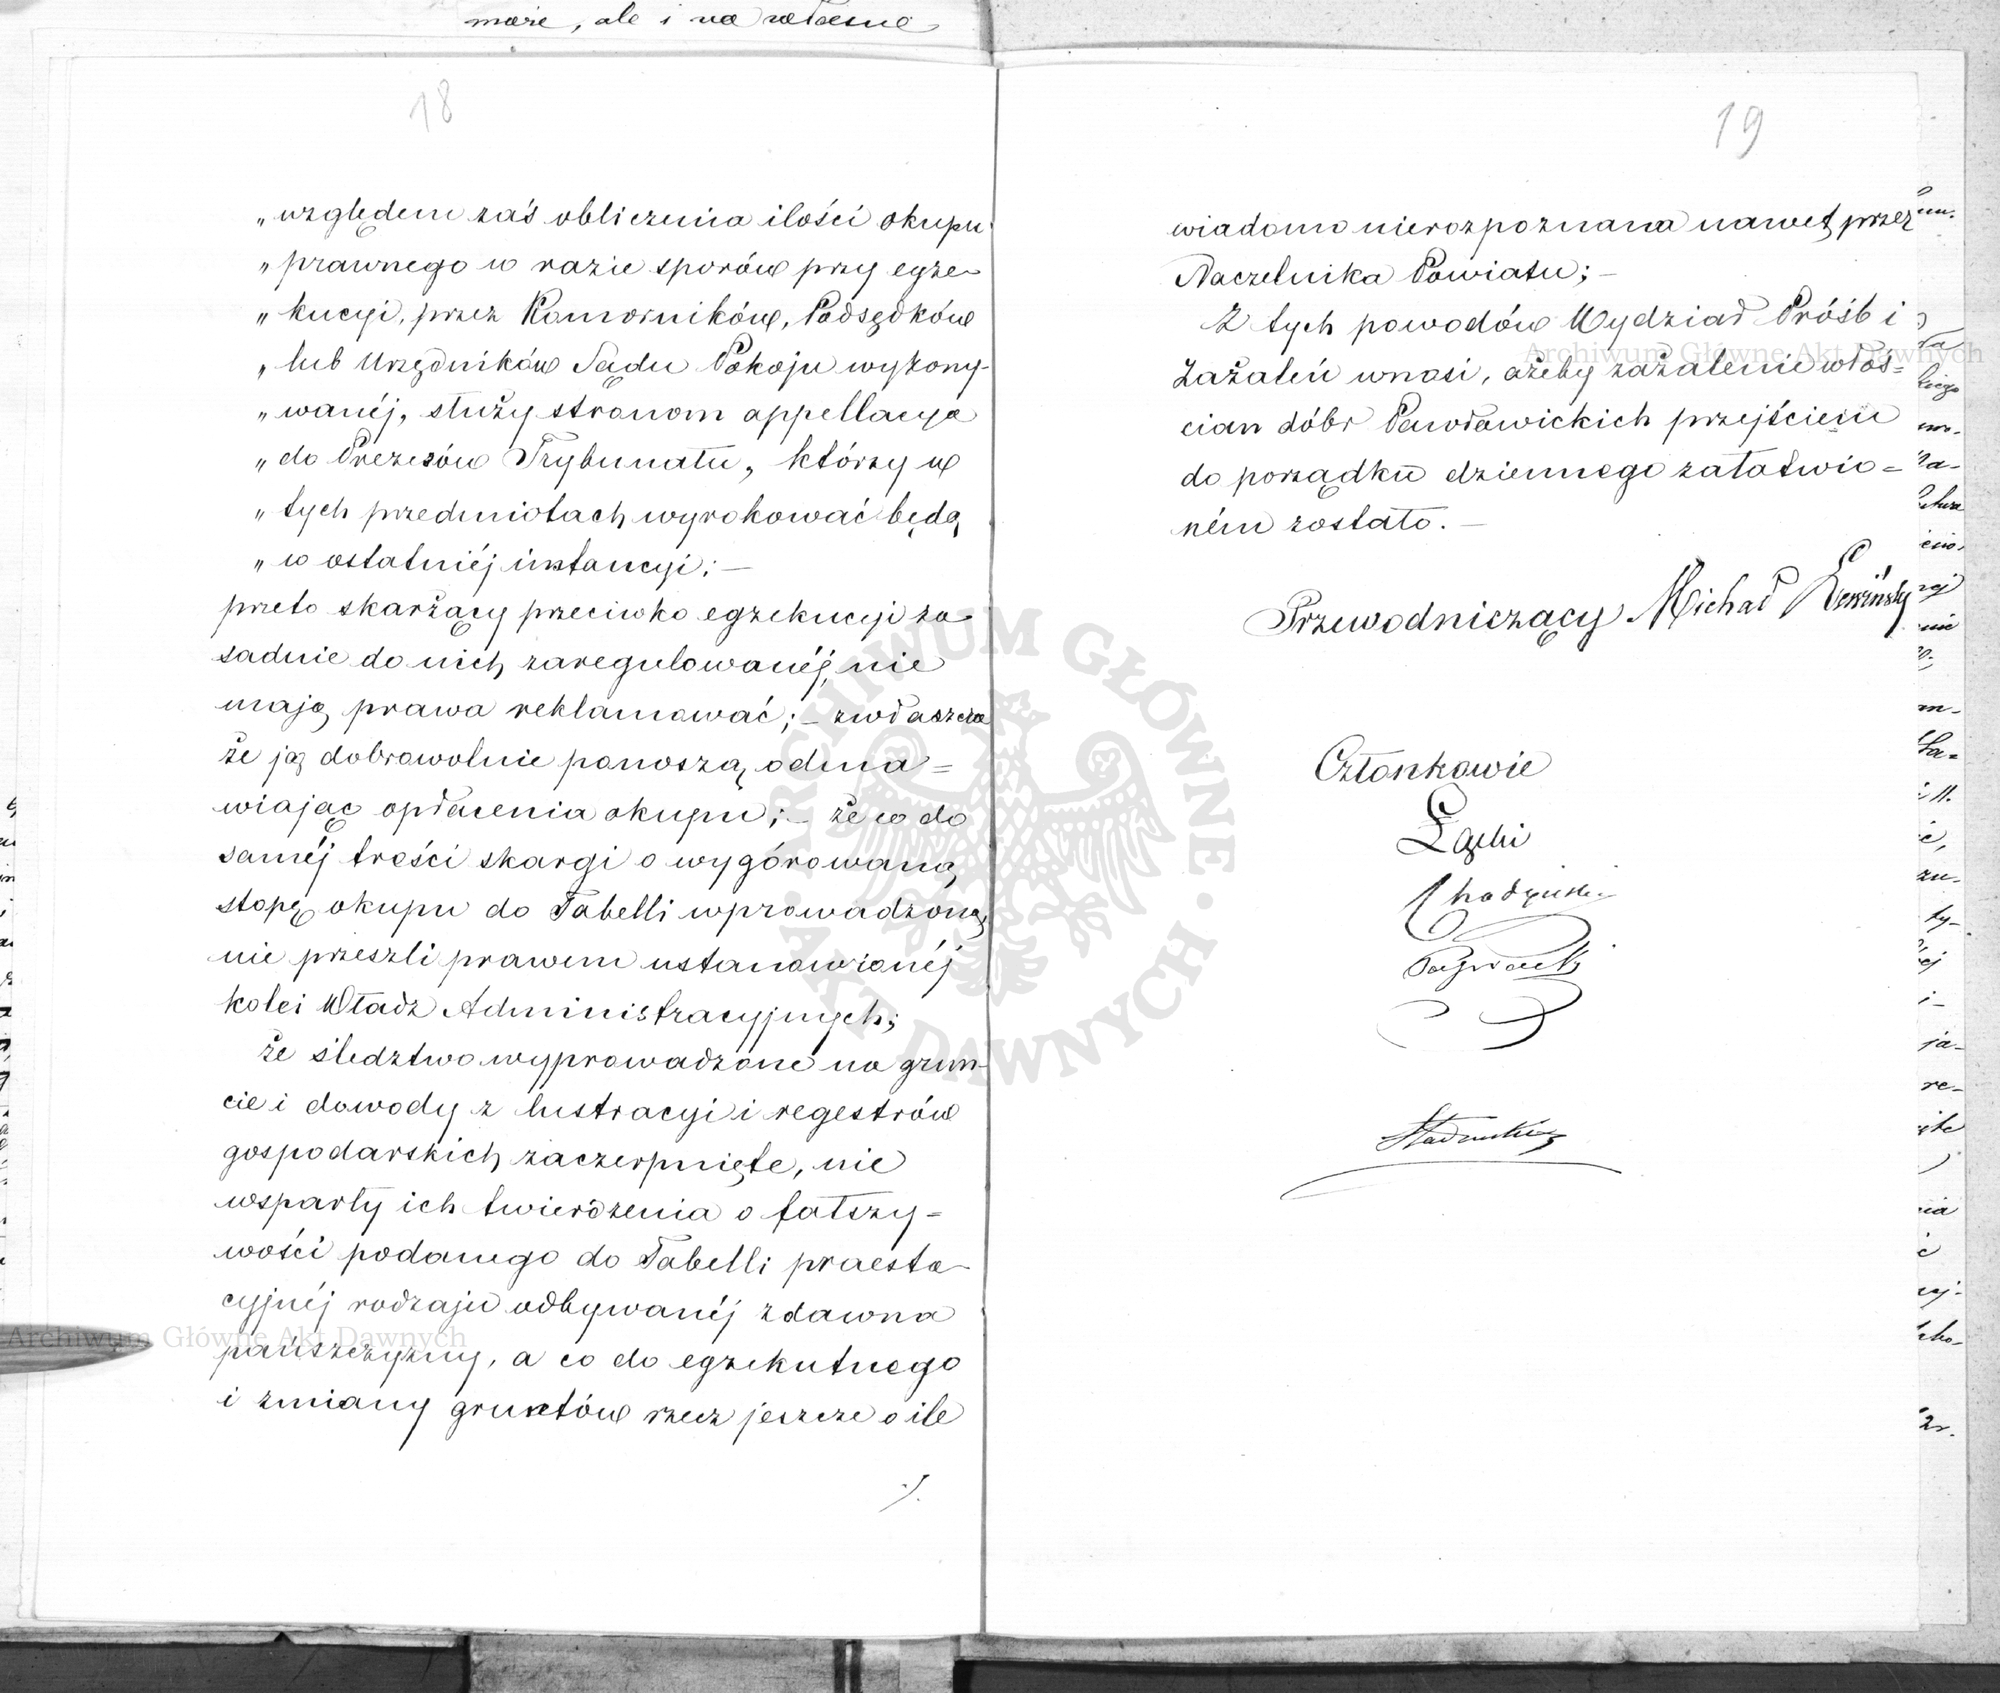 może, ale i na własne
18
„ względem zaś obliczenia ilości okupu
„ prawnego w razie sporów przy egze-
„ kucyi, przez Komorników, Podsędków
„ lub Urzędników Sądu Pokoju wykony-
„ wanéj, służy stronom appellacya
„ do Prezesów Trybunału, którzy w
„ tych przedmiotach wyrokować będą
„ w ostatniéj instancyi; —
przeto skarżący przeciwko egzekucyi za
sadnie do nich zaregulowanéj, nie
mają prawa reklamować; — zwłaszcza
że ją dobrowolnie ponoszą odma=
wiając opłacenia okupu; — że co do
saméj treści skargi o wygórowaną
stopę okupu do Tabelli wprowadzoną,
nie przeszli prawem ustanowionéj
kolei Władz Administracyjnych;
że śledztwo wyprowadzone na grun-
cie i dowody z lustracyi i regestrów
gospodarskich zaczerpnięte, nie
wsparły ich twierdzenia o fałszy=
wości podanego do Tabelli praesta-
cyjnéj rodzaju odbywanéj zdawna
pańszczyzny, a co do egzekutnego
i zmiany gruntów rzecz jeszcze o ile
./.
19
wiadomo nierozpoznana nawet przez
Naczelnika Powiatu; —
Z tych powodów Wydział Próśb i
Zażaleń wnosi, ażeby zażalenie włoś=
cian dóbr Pawłowickich przejściem
do porządku dziennego załatwio=
ném zostało. —
Przewodniczący Michał
Członkowie
Łącki
Archiwum Główne Akt Dawnych
Archiwum Główne Akt Dawnych
ARCHIWUM GŁÓWNE AKT DAWNYCH